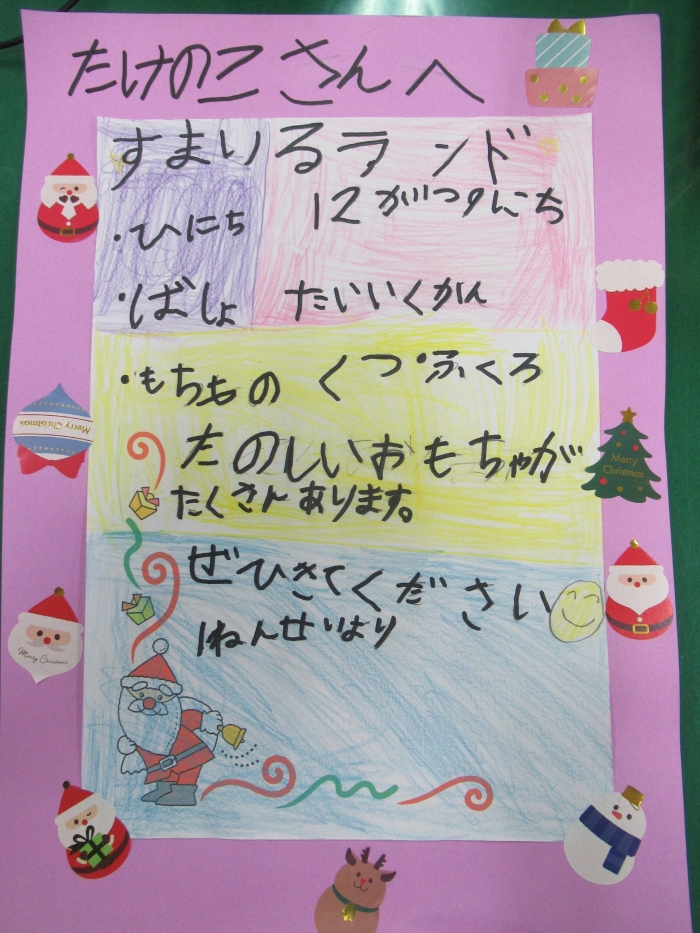 たけのこさんへ
すまいるランド
・ひにち 12がつ9にち
・ばしょ たいいくかん
・もちもの くつ・ふくろ
たのしいおもちゃが
たくさんあります。
ぜひきてください
1ねんせいより
Merry Christmas
Merry
Christmas
Merry Christmas